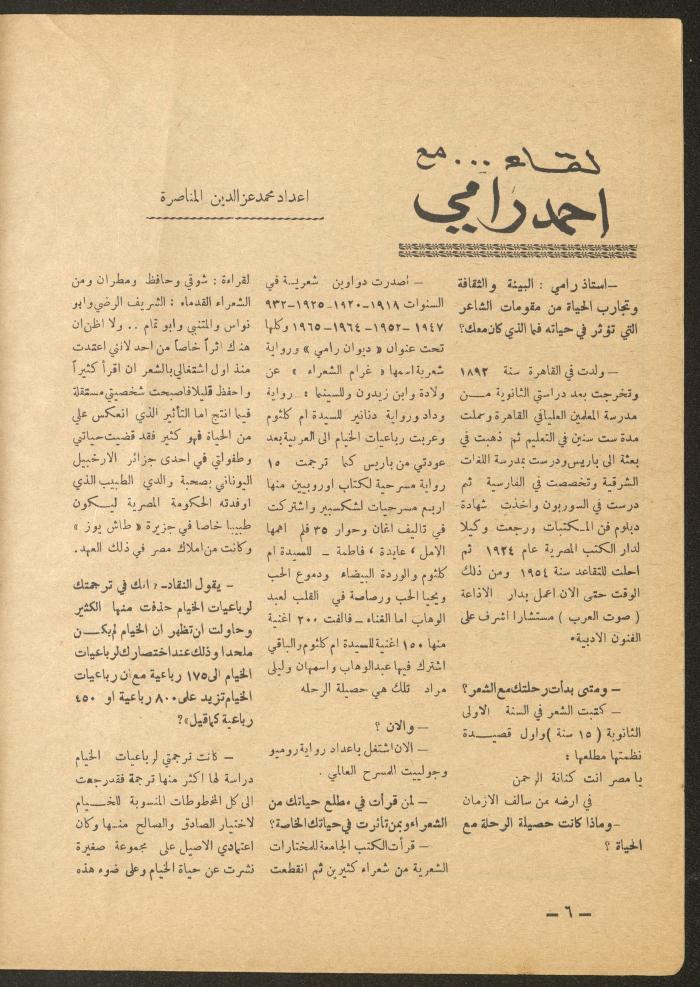 لقاء ... مع
احمد رامي
اعداد محمد عز الدين المناصرة
— استاذ رامي : البيئة والثقافة
وتجارب الحياة من مقومات الشاعر
التي تؤثر في حياته فما الذي كان معك؟
— ولدت في القاهرة سنة ١٨٩٢
وتخرجت بعد دراستي الثانوية مـــن
مدرسة المعلمين العليا في القاهرة وعملت
مدة ست سنين في التعليم ثم ذهبت في
بعثة الى باريس ودرست بمدرسة اللغات
الشرقية وتخصصت في الفارسية ثم
درست في السوربون واخذت شهادة
دبلوم فن المكتبات ورجعت وكيلا
لدار الكتب المصرية عام ١٩٢٤ ثم
احلت للتقاعد سنة ١٩٥٤ ومن ذلك
الوقت حتى الان اعمل بدار الاذاعة
( صوت العرب ) مستشارا اشرف على
الفنون الادبية٠
— ومتى بدأت رحلتك مع الشعر؟
— كتبت الشعر في السنة الاولى
الثانوية ( ١٥ سنة ) واول قصيـــدة
نظمتها مطلعها :
يا مصر انت كنانة الرحمن
في ارضه من سالف الازمان
— وماذا كانت حصيلة الرحلة مع
الحياة ؟
— أصدرت دواوين شعريـــة في
السنوات ١٩١٨-١٩٢٠-١٩٢٥-٩٣٢
١٩٤٧-١٩٥٢-١٩٦٤-١٩٦٥ وكلها
تحت عنوان « ديوان رامي » ورواية
شعرية اسمها « غرام الشعراء » عن
ولادة وابن زيدون وللسينما : رواية
وداد ورواية دنانير للسيدة ام كلثوم
وعربت رباعيات الخيام الى العربية بعد
عودتي من باريس كما ترجمت ١٥
رواية مسرحية لكتاب اوروبيين منها
اربع مسرحيات لشكسبير واشتركت
في تاليف اغان وحوار ٣٥ فلم اهمها
الامل ، عايدة ، فاطمة — للسيدة ام
كلثوم والوردة البيضاء ودموع الحب
ويحيا الحب ورصاصة في القلب لعبد
الوهاب اما الغناء — فالفت ٢٠٠ اغنية
منها ١٥٠ اغنية للسيدة ام كلثوم والباقي
اشترك فيها عبد الوهاب واسمهان وليلى
مراد تلك هي حصيلة الرحله
— والان ؟
— الان اشتغل باعداد رواية روميو
وجولييت المسرح العالمي .
— لمن قرأت في مطلع حياتك من
الشعراء وبمن تأثرت في حياتك الخاصة؟
— قرأت الكتب الجامعة للمختارات
الشعرية من شعراء كثيرين ثم انقطعت
لقراءة : شوقي وحافظ ومطران ومن
الشعراء القدماء : الشريف الرضي وابو
نواس والمتنبي وابو تمام .. ولا اظن ان
هناك اثراً خاصاً من احد لانني اعتدت
منذ اول اشتغالي بالشعر ان اقرأ كثيراً
واحفظ قليلا فاصبحت شخصيتي مستقلة
فيما انتج اما التأثير الذي انعكس علي
من الحياة فهو كثير فقد قضيت حياتي
وطفولتي في احدى جزائر الارخبيل
اليوناني بصحبة والدي الطبيب الذي
اوفدته الحكومة المصرية ليكون
طبيبا خاصا في جزيرة « طاش يوز »
وكانت من املاك مصر في ذلك العهد.
— يقول النقاد : انك في ترجمتك
لرباعيات الخيام حذفت منها الكثير
وحاولت ان تظهر ان الخيام لم يكـــن
ملحدا وذلك عند اختصارك لرباعيات
الخيام الى ١٧٥ رباعية مع ان رباعيات
الخيام تزيد على ٨٠٠ رباعية او ٤٥٠
رباعية كما قيل»؟
— كانت ترجمتي لرباعيات الخيام
دراسة لها اكثر منها ترجمة فقد رجعت
الى كل المخطوطات المنسوبة للخـــيام
لاختيار الصادق والصالح منها وكان
اعتمادي الاصيل على مجموعة صغيرة
نشرت عن حياة الخيام وعلى ضوء هذه
— ٦ —